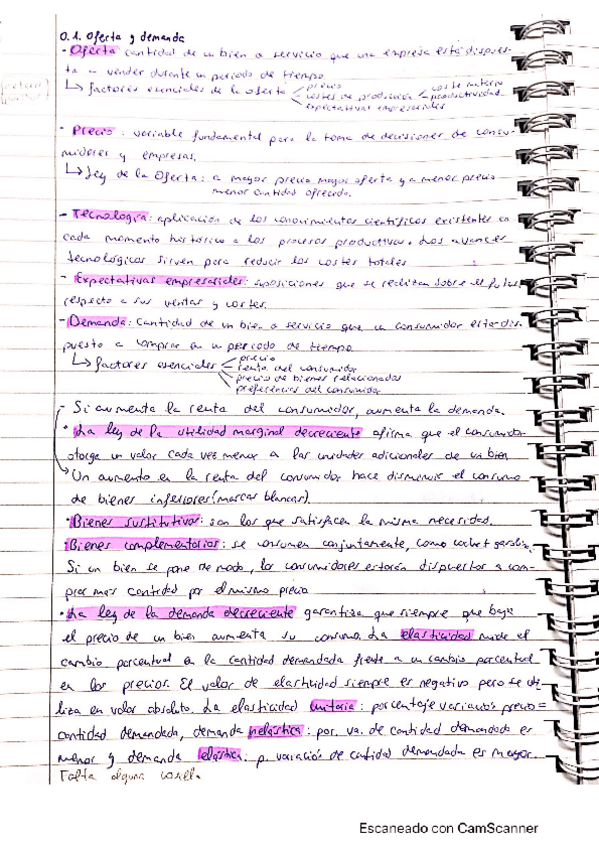 0.1. Oferta y demanda
- Oferta cantidad de un bien o servicio que una empresa está dispues-
ta a vender durante un periodo de tiempo.
↳ factores esenciales de la oferta precio
costes de producción coste materia
productividad
expectativas empresariales
- Precio: variable fundamental para la toma de decisiones de consu-
midores y empresas.
↳ Ley de la Oferta: a mayor precio mayor oferta y a menor precio
menor cantidad ofrecida.
- Tecnología: aplicación de los conocimientos científicos existentes en
cada momento histórico a los procesos productivos. Los avances
tecnológicos sirven para reducir los costes totales
- Expectativas empresariales: suposiciones que se realizan sobre el futuro
respecto a sus ventas y costes.
- Demanda: Cantidad de un bien o servicio que un consumidor está dis-
puesto a comprar en un periodo de tiempo.
↳ factores esenciales precio
renta del consumidor
precio de bienes relacionados
preferencias del consumidor
- Si aumenta la renta del consumidor, aumenta la demanda.
· La ley de la utilidad marginal decreciente afirma que el consumidor
otorga un valor cada vez menor a las unidades adicionales de un bien
Un aumento en la renta del consumidor hace disminuir el consumo
de bienes inferiores (marcas blancas).
· Bienes sustitutivos: son los que satisfacen la misma necesidad.
· Bienes complementarios: se consumen conjuntamente, como coche + gasolina.
Si un bien se pone de moda, los consumidores estarán dispuestos a com-
prar mas cantidad por el mismo precio
· La ley de la demanda decreciente garantiza que siempre que baje
el precio de un bien aumenta su consumo. La elasticidad mide el
cambio porcentual en la cantidad demandada frente a un cambio porcentual
en los precios. El valor de elasticidad siempre es negativo pero se uti-
liza en valor absoluto. La elasticidad unitaria: porcentaje variación precio =
cantidad demandada, demanda inelástica: por. va. de cantidad demandada es
menor y demanda elástica: p. variación de cantidad demandada es mayor.
Falta alguna
Escaneado con CamScanner